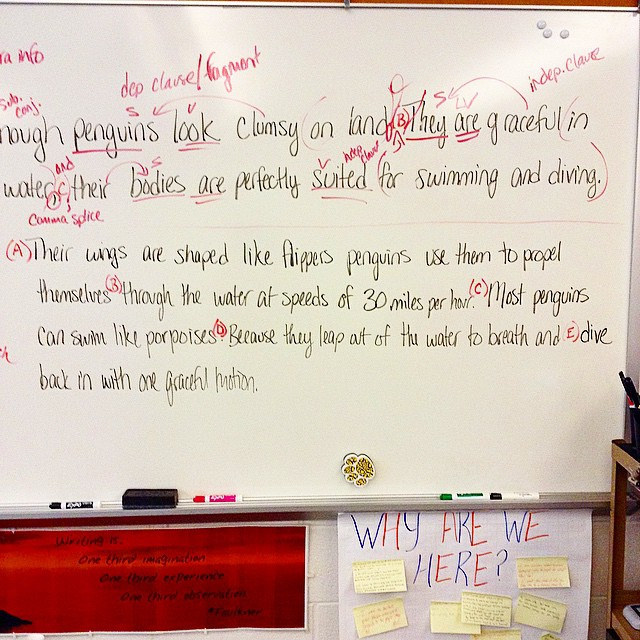 ra info
dep clause/fragment
indep. clause
sub. conj.
S V S LV
nough penguins look clumsy (on land (B) They are graceful (in
and S V indep clause
water, (C) their bodies are perfectly suited (for swimming and diving.)
Comma splice
(A) Their wings are shaped like flippers penguins use them to propel
themselves (B) through the water at speeds of 30 miles per hour. (C) Most penguins
can swim like porpoises (D). Because they leap out of the water to breath and (E) dive
back in with one graceful motion.
expo
WHY ARE WE
HERE?
Writing is:
One third imagination
One third experience
One third observation
Faulkner